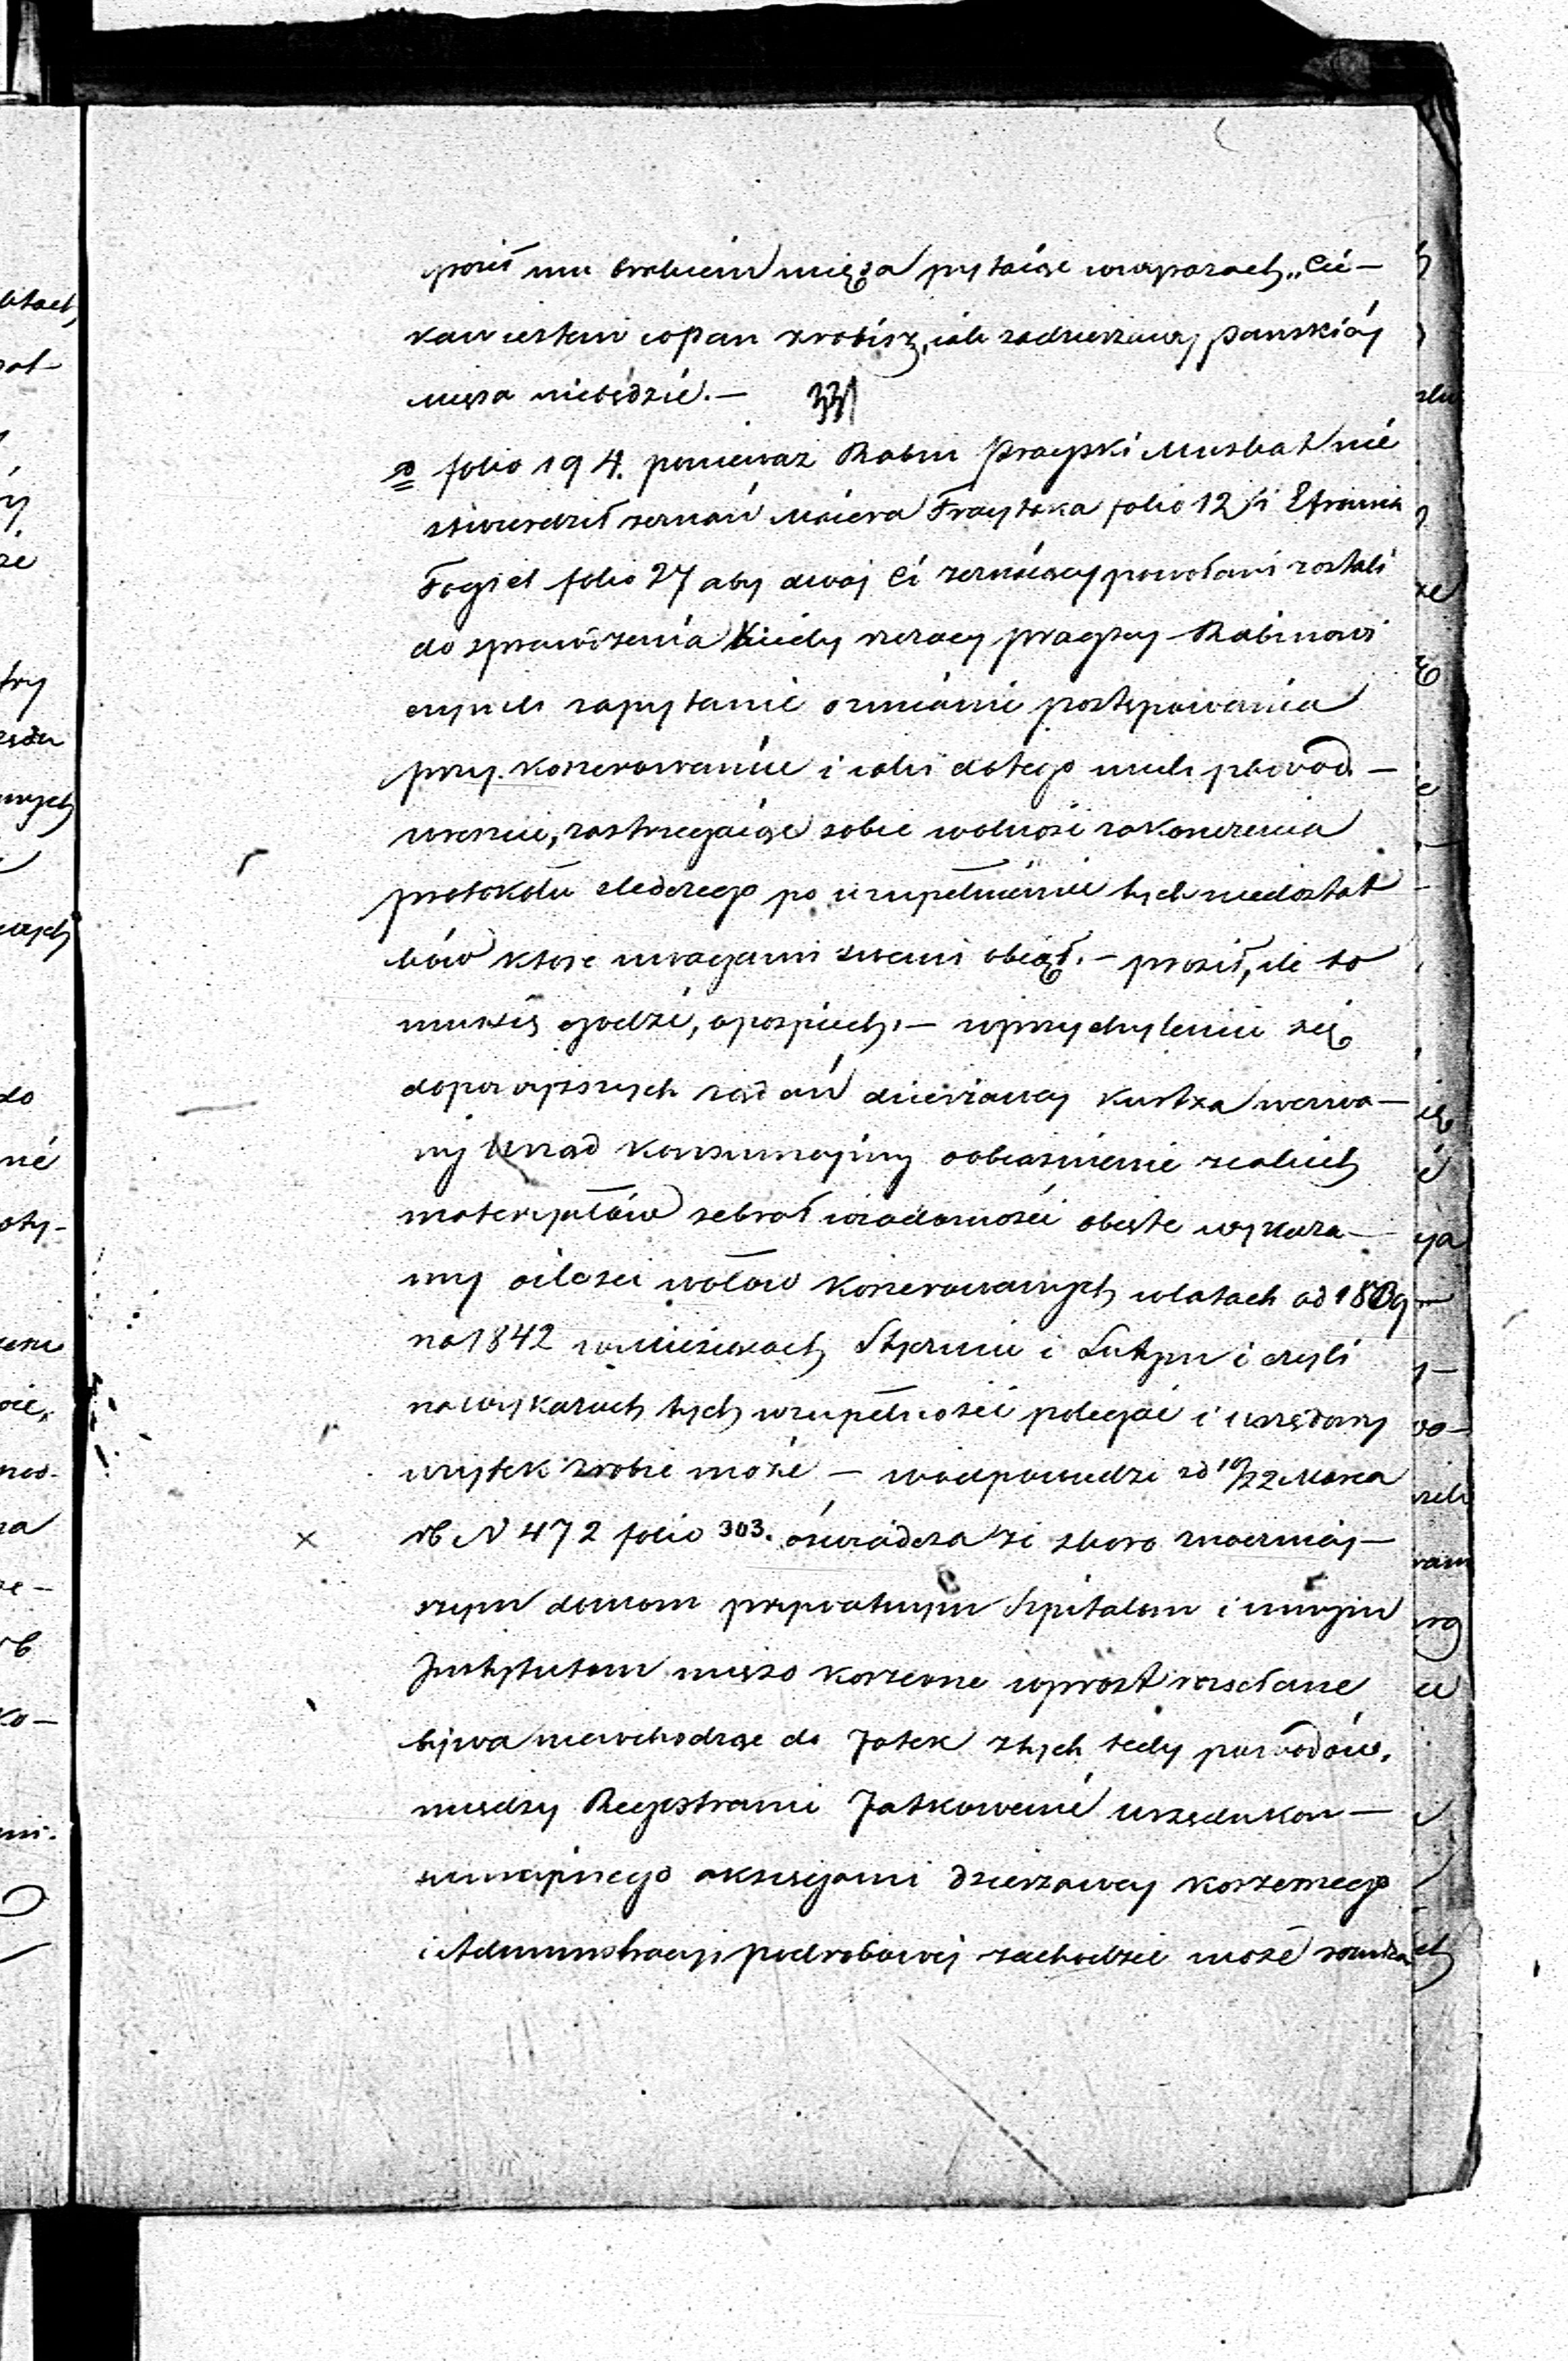 mu brakiem mięsa pytaiąc w wyrazach „Cie—
kaw iestem co Pan zrobisz, iak z dzierzawy panskiéj
mięsa niebędzie.—
folio 194. poniewaz Rabin Pragski Muszkat nie
stwierdził zeznań Maiera Fraytaka folio 12 i Efroima
Fogiel folio 27 aby dwaj Ci zeznaiący powołani zostali
do sprawdzenia kiedy rzezacy pragscy Rabinowi
czynili zapytanie o zmianie postępowania
przy koszerowaniu i iaki do tego mieli powód —
wreszcie, zastrzegaiąc sobie wolność zakonczenia
protokołu sledczego po uzupełnieniu tych niedostat
ków które uwagami swemi obiął. — prosił, ile to
mu się godzi, o pospiech. — w przychyleniu się
do powyzszych żądań dzierżawcy Kurtza wezwa—
ny Urząd Konsumcyiny o obiaśnienie z iakich
materyałów zebrał wiadomości obięte wykaza—
mi o ilości wołów Koszerowanych w latach od 1839
na 1842 w Miesiącach Styczniu i Lutym i czyli
na wykazach tych w zupełności polegać i urzędowy
użytek zrobić może — w odpowiedzi z d 10/22 Marca
rb N 472 folio 303. oświadcza że skoro znaczniey—
szym domom prywatnym Szpitalom i innym
Instytutom mięso koszerne wprost rozsełane
bywa niewchodząc do Jatek z tych tedy powodów,
miedzy Regestrami Jatkowemi urzędu kon—
sumcyinego a ksiegami dzierzawcy koszernego
i Administracyi podrobowéj zachodzić może